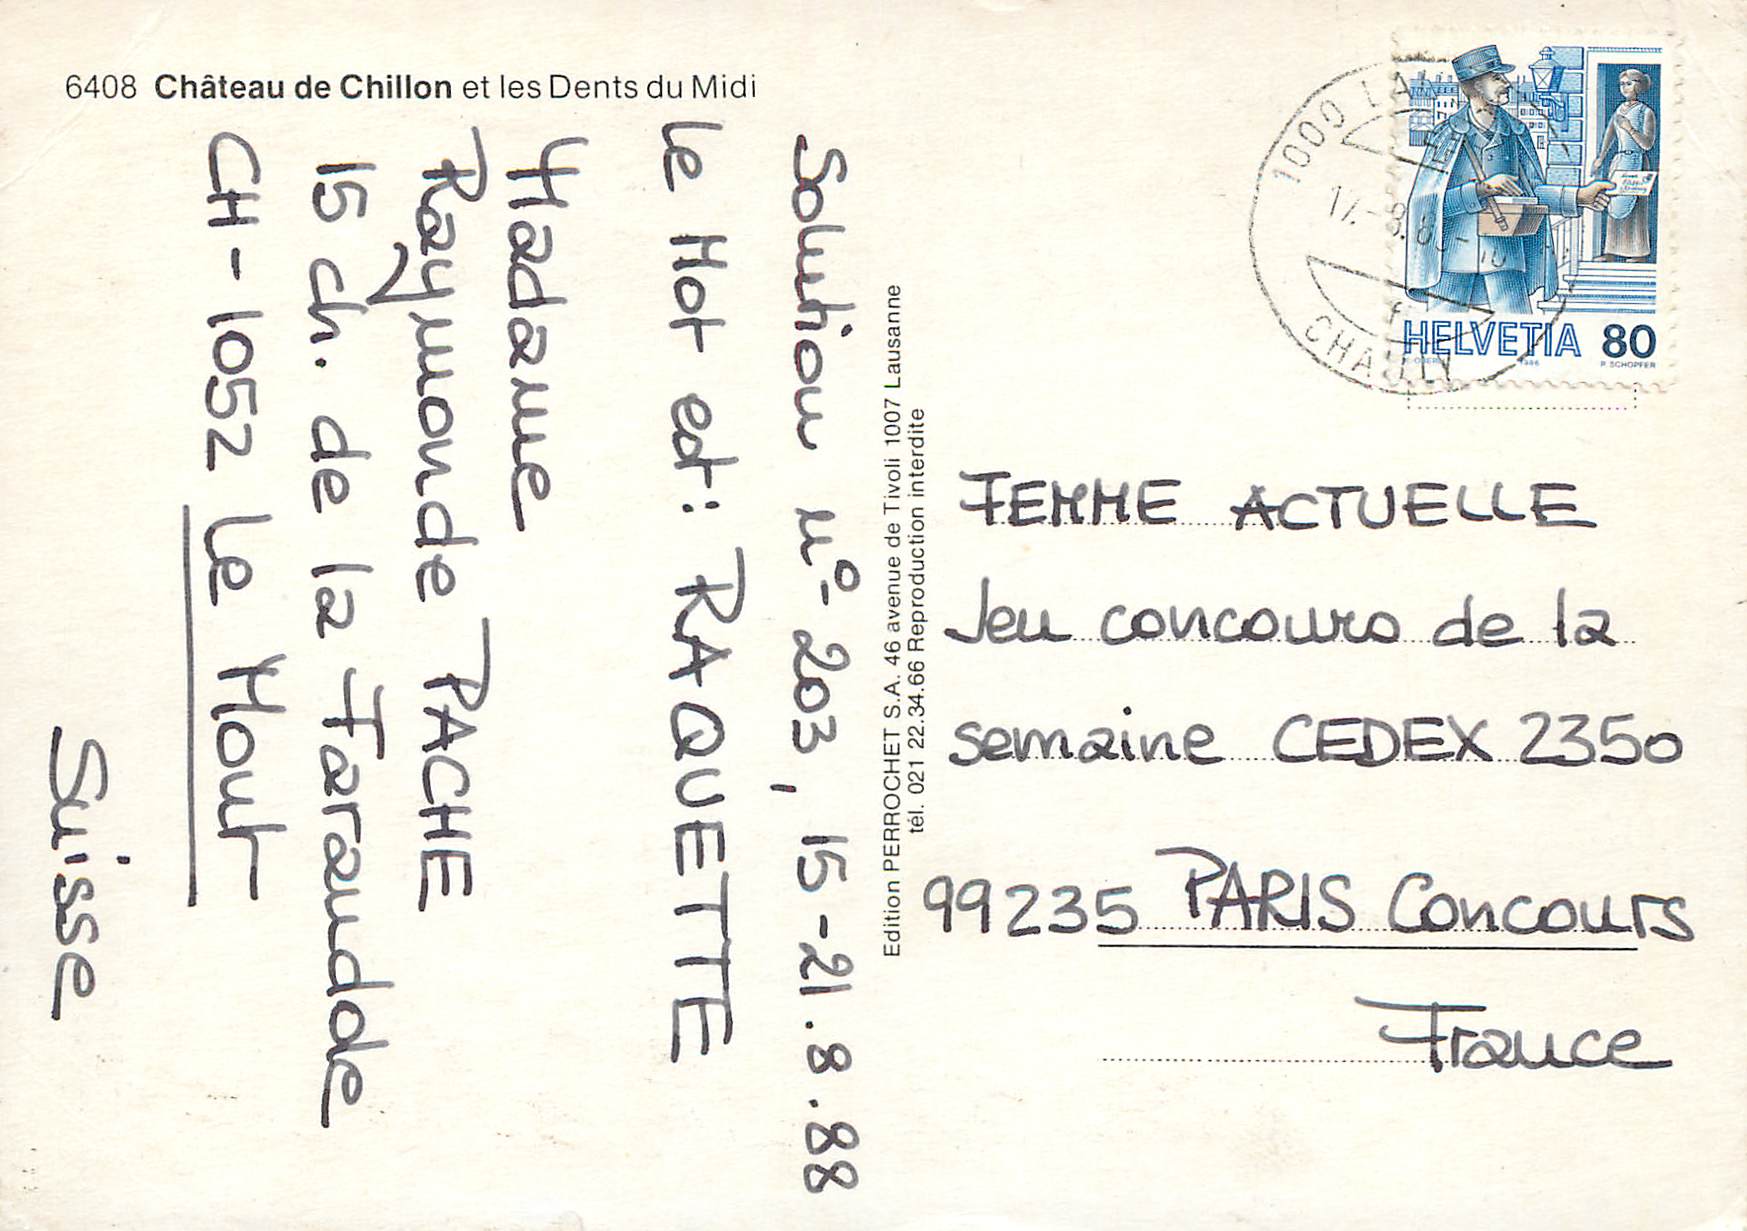 6408 Château de Chillon et les Dents du Midi
Solution n° 203, 15-21.8.88
Le Mot est: RAQUETTE
Madame
Raymonde PACHE
15 ch. de la Faraudde
CH-1052 Le Mont
Suisse
Edition PERROCHET S.A. 46 avenue de Tivoli 1007 Lausanne
tél. 021 22.34.66 Reproduction interdite
1000 LA
17.-8.88-
CHAILLY
HELVETIA 80
1986 R. SCHOPFER
FEMME ACTUELLE
Jeu concours de la
semaine CEDEX 2350
99235 PARIS Concours
France